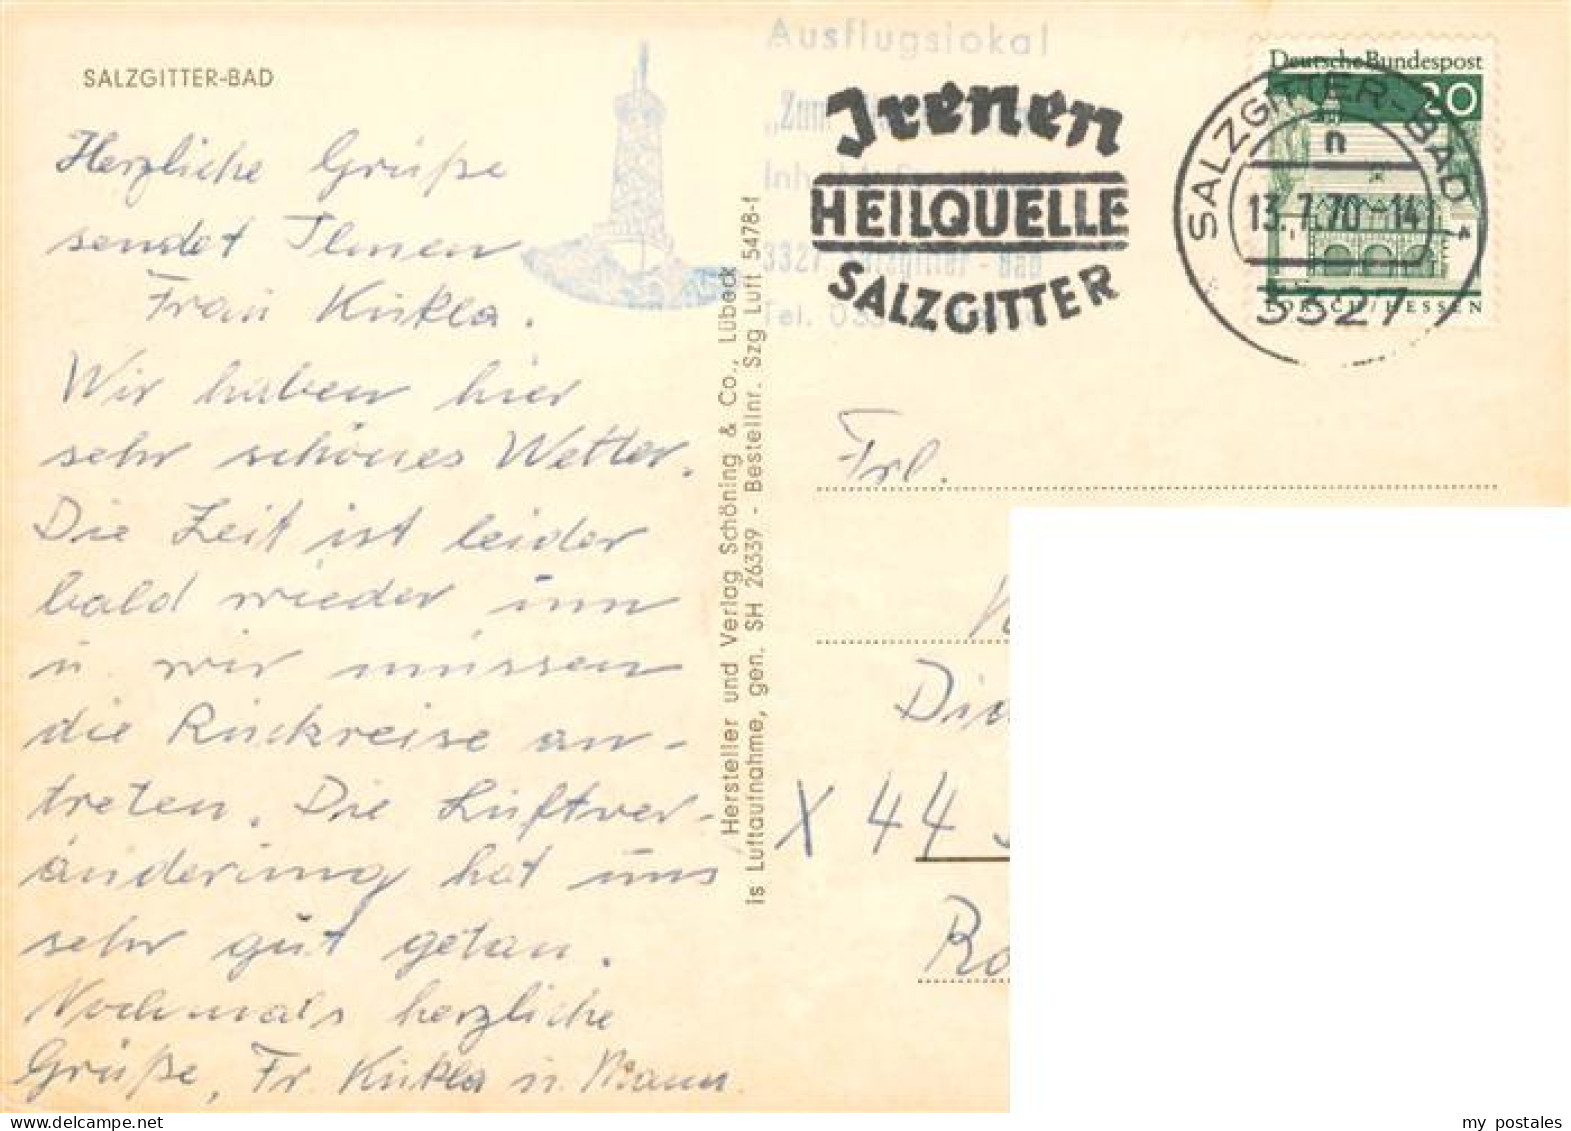 SALZGITTER-BAD
Herzliche Grüße
sendet Ihnen
Frau Kukla.
Wir haben hier
sehr schönes Wetter.
Die Zeit ist leider
bald wieder um
u. wir müssen
die Rückreise an-
treten. Die Luftver-
änderung hat uns
sehr gut getan.
Nochmals herzliche
Grüße, Fr. Kukla u. Mann.
Hersteller und Verlag Schöning & Co., Lübeck
is Luftaufnahme, gen. SH 26339 - Bestellnr. Szg Luft 5478-1
Ausflugslokal
"Zum
3327 Salzgitter - Bad
Tel.
Irenen
HEILQUELLE
SALZGITTER
SALZGITTER-BAD
n
13.7.70-14
3327
Deutsche Bundespost
20
LORSCH/HESSEN
Frl.
X 44
my postales